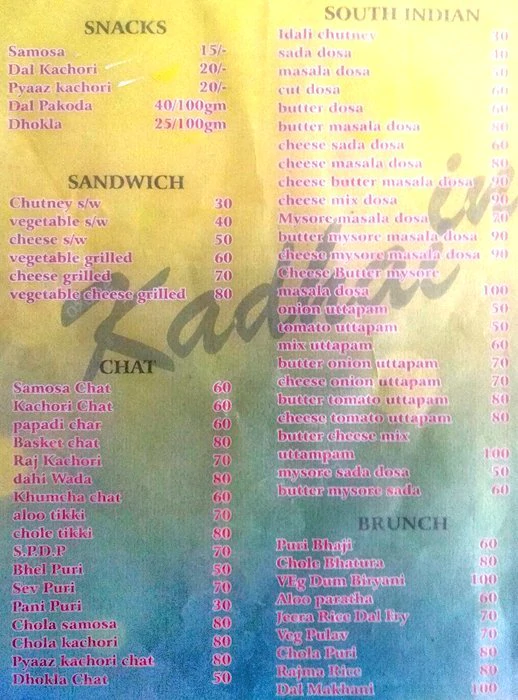 SNACKS
Samosa 15/-
Dal Kachori 20/-
Pyaaz kachori 20/-
Dal Pakoda 40/100gm
Dhokla 25/100gm
SANDWICH
Chutney s/w 30
vegetable s/w 40
cheese s/w 50
vegetable grilled 60
cheese grilled 70
vegetable cheese grilled 80
CHAT
Samosa Chat 60
Kachori Chat 60
papadi char 60
Basket chat 80
Raj Kachori 70
dahi Wada 80
Khumcha chat 60
aloo tikki 70
chole tikki 80
S.P.D.P 70
Bhel Puri 50
Sev Puri 70
Pani Puri 30
Chola samosa 80
Chola kachori 80
Pyaaz kachori chat 80
Dhokla Chat 50
SOUTH INDIAN
Idali chutney
sada dosa
masala dosa
cut dosa 60
butter dosa 60
butter masala dosa 80
cheese sada dosa 60
cheese masala dosa 80
cheese butter masala dosa 90
cheese mix dosa 90
Mysore masala dosa 70
butter mysore masala dosa 90
cheese mysore masala dosa 90
Cheese Butter mysore
masala dosa 100
onion uttapam 50
tomato uttapam 50
mix uttapam 60
butter onion uttapam 70
cheese onion uttapam 70
butter tomato uttapam 80
cheese tomato uttapam 80
butter cheese mix
uttampam 100
mysore sada dosa 50
butter mysore sada 60
BRUNCH
Puri Bhaji 60
Chole Bhatura 80
VEg Dum Biryani 100
Aloo paratha 60
Jeera Rice Dal Fry 70
Veg Pulav 70
Chola Puri 80
Rajma Rice 80
Dal Makhani 100
Kadhai in